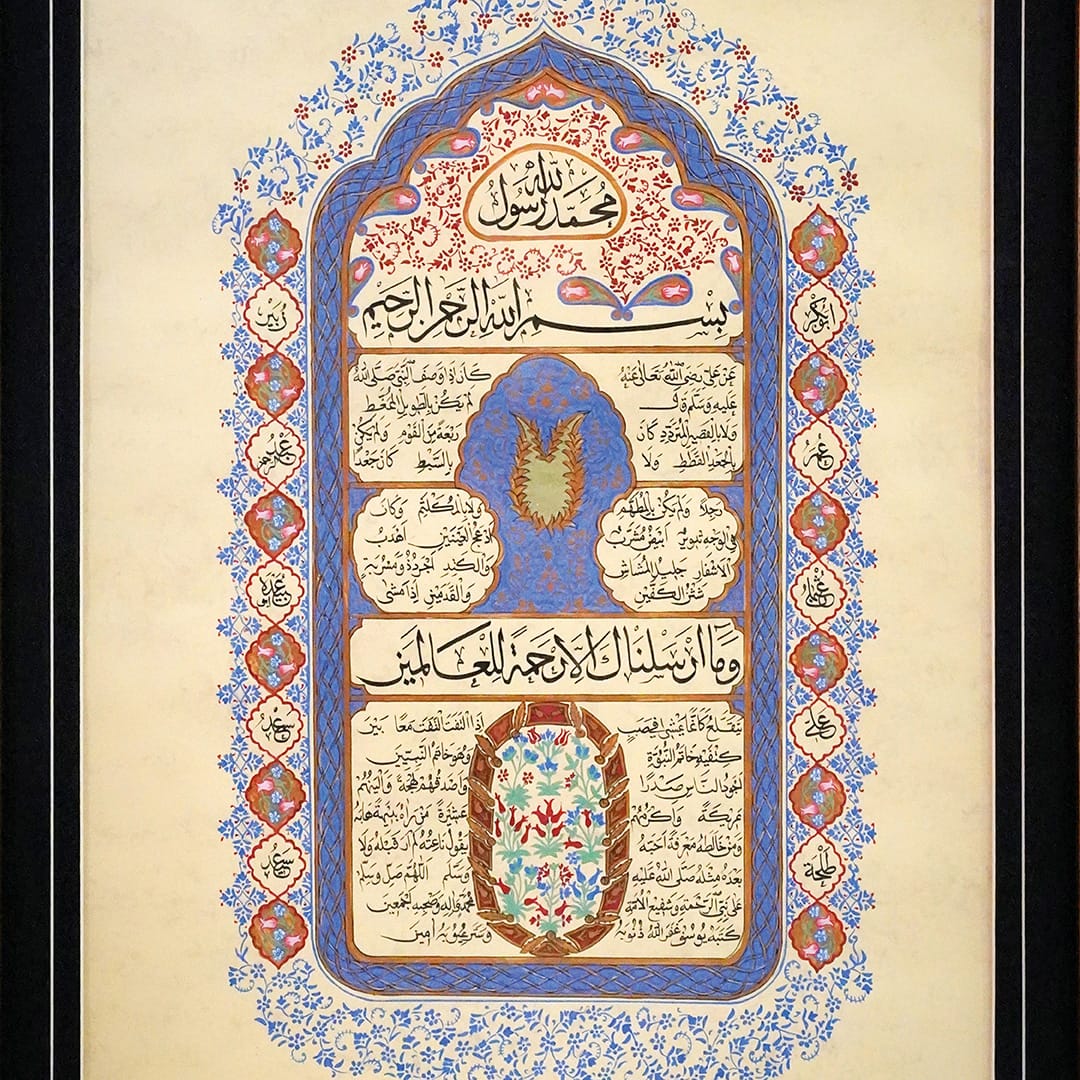 محمد رسول الله
بسم الله الرحمن الرحيم
عن علي رضي الله تعالى عنه كان اذا وصف النبي صلى الله
عليه وسلم قال لم يكن بالطويل الممغط
ولا بالقصير المتردد كان ربعة من القوم ولم يكن
بالجعد القطط ولا بالسبط كان جعدا
رجلا ولم يكن بالمطهم ولا بالمكلثم وكان
في الوجه تدوير ابيض مشرب ادعج العينين اهدب
الاشفار جليل المشاش والكتد اجرد ذو مسربة
شثن الكفين والقدمين اذا مشى
وما ارسلناك الا رحمة للعالمين
يتقلع كانما يمشي في صبب اذا التفت التفت معا بين
كتفيه خاتم النبوة وهو خاتم النبيين
اجود الناس صدرا واصدقهم لهجة والينهم
عريكة واكرمهم عشيرة من رآه بديهة هابه
ومن خالطه معرفة احبه يقول ناعته لم ار قبله ولا
بعده مثله صلى الله عليه وسلم اللهم صل وسلم
على نبي الرحمة وشفيع الامة محمد واله وصحبه اجمعين
كتبه يوسف غفر الله ذنوبه وستر عيوبه آمين
ابوبكر
عمر
عثمان
علي
طلحة
زبير
عبدالرحمن
ابوعبيدة
سعد
سعيد